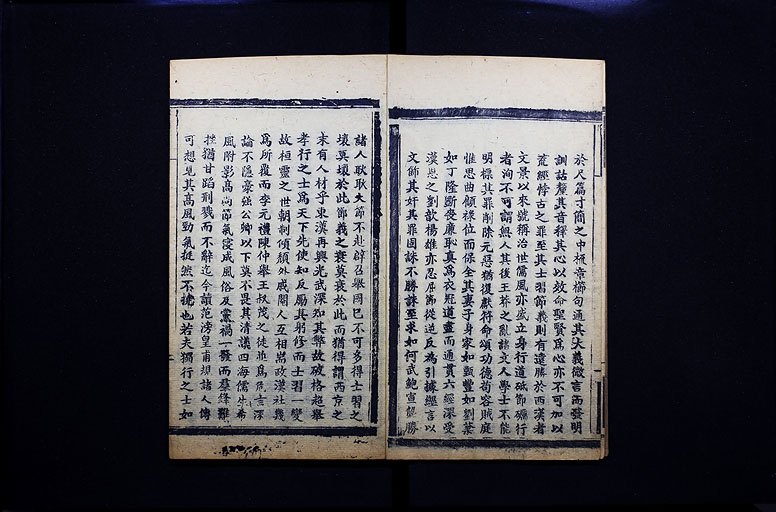 於尺篇寸簡之中極章櫛句通其大義微言而發明
訓詁釐其音釋其心以效命聖賢爲心亦不可加以
荒經悖古之罪至其士習節義則有遠勝於西漢者
文景以來號稱治世儒風亦盛立身行道砥節礪行
者洵不可謂無人其後王莽之亂諸文人學士不能
明標其罪削除元惡猶復獻符命頌功德苟容賊庭
惟思曲顧祿位而保全其妻子身家如甄豐如劉棻
如丁隆斷喪廉恥真爲衣冠道盡而通貫六經深受
漢恩之劉歆楊雄亦忍屈節從逆反為引據經言以
文飾其奸其罪固誅不勝誅至求如何武鮑宣龔勝
諸人耿耿大節不赴辟召舉國已不可多得士習之
壞莫壞於此節義之衰莫衰於此而猶得謂西京之
末有人材乎東漢再興光武深知其弊故破格超舉
孝行之士爲天下先使知反勵其躬修而士習一變
故桓靈之世朝制傾頹外戚閹人互相煽政漢社幾
爲所覆而李元禮陳仲舉王叔茂之徒並爲危言深
論不隱豪強公卿以下莫不畏其清議四海儒生希
風附影高尚節氣寖成風俗及黨禍一發而羣絳難
挫猶甘蹈刑戮而不辭迄今讀范滂皇甫規諸人傳
可想見其高風勁氣挺然不撓也若夫獨行之士如